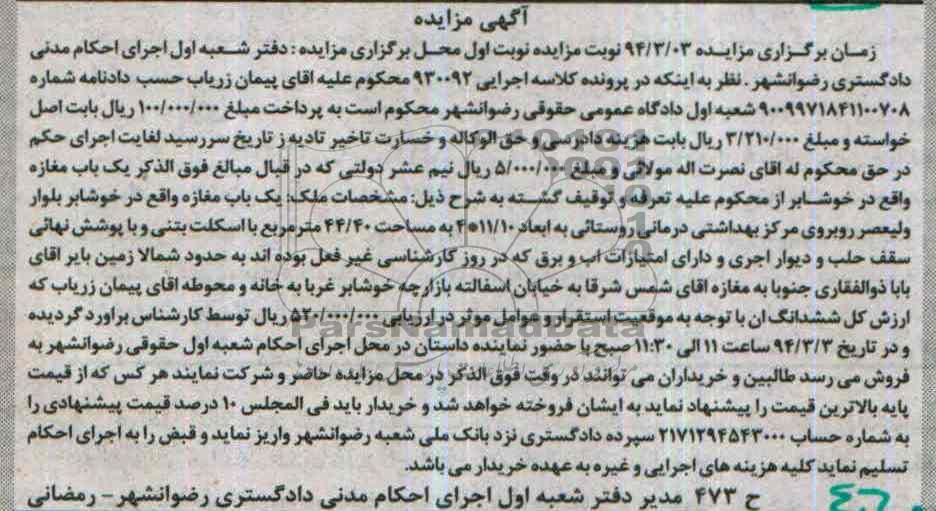 آگهی مزایده
زمان برگزاری مزایده ۹۴/۳/۰۳ نوبت مزایده نوبت اول محل برگزاری مزایده : دفتر شعبه اول اجرای احکام مدنی
دادگستری رضوانشهر . نظر به اینکه در پرونده کلاسه اجرایی ۹۳۰۰۹۲ محکوم علیه اقای پیمان زرباب حسب دادنامه شماره
۹۰۰۹۹۷۱۸۴۱۱۰۰۷۰۸ شعبه اول دادگاه عمومی حقوقی رضوانشهر محکوم است به پرداخت مبلغ ۱۰۰/۰۰۰/۰۰۰ ریال بابت اصل
خواسته و مبلغ ۳/۲۱۰/۰۰۰ ریال بابت هزینه دادرسی و حق الوکاله و خسارت تاخیر تادیه ز تاریخ سررسید لغایت اجرای حکم
در حق محکوم له اقای نصرت اله مولائی و مبلغ ۵/۰۰۰/۰۰۰ ریال نیم عشر دولتی که در قبال مبالغ فوق الذکر یک باب مغازه
واقع در خوشابر از محکوم علیه تعرفه و توقیف گشته به شرح ذیل: مشخصات ملک: یک باب مغازه واقع در خوشابر بلوار
ولیعصر روبروی مرکز بهداشتی درمانی روستائی به ابعاد ۱۱/۱۰*۴ به مساحت ۴۴/۴۰ مترمربع با اسکلت بتنی و با پوشش نهائی
سقف حلب و دیوار اجری و دارای امتیازات اب و برق که در روز کارشناسی غیر فعل بوده اند به حدود شمالا زمین بایر اقای
بابا ذوالفقاری جنوبا به مغازه اقای شمس شرقا به خیابان اسفالته بازارچه خوشابر غربا به خانه و محوطه اقای پیمان زرباب که
ارزش کل ششدانگ ان با توجه به موقعیت استقرار و عوامل موثر در ارزیابی ۵۲۰/۰۰۰/۰۰۰ ریال توسط کارشناس براورد گردیده
و در تاریخ ۹۴/۳/۳ ساعت ۱۱ الی ۱۱:۳۰ صبح با حضور نماینده داستان در محل اجرای احکام شعبه اول حقوقی رضوانشهر به
فروش می رسد طالبین و خریداران می توانند در وقت فوق الذکر در محل مزایده حاضر و شرکت نمایند هر کس که از قیمت
پایه بالاترین قیمت را پیشنهاد نماید به ایشان فروخته خواهد شد و خریدار باید فی المجلس ۱۰ درصد قیمت پیشنهادی را
به شماره حساب ۲۱۷۱۲۹۴۵۴۳۰۰۰ سپرده دادگستری نزد بانک ملی شعبه رضوانشهر واریز نماید و قبض را به اجرای احکام
تسلیم نماید کلیه هزینه های اجرایی و غیره به عهده خریدار می باشد.
ح ۴۷۳ مدیر دفتر شعبه اول اجرای احکام مدنی دادگستری رضوانشهر- رمضانی
ParsNamadData